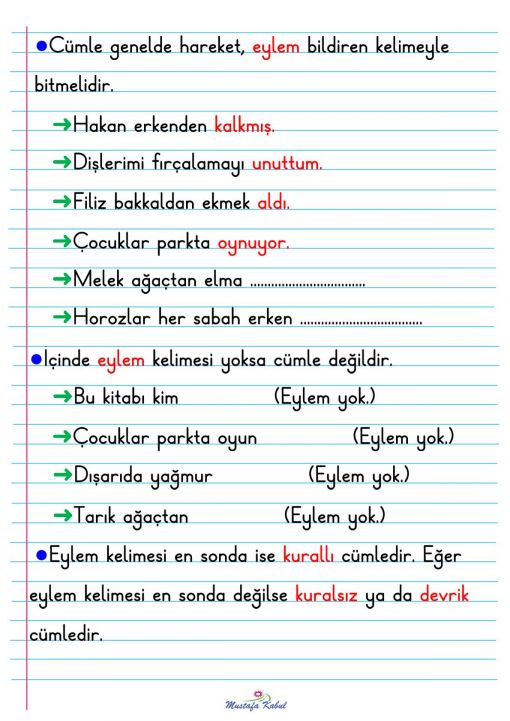 ●Cümle genelde hareket, eylem bildiren kelimeyle
bitmelidir.
➜Hakan erkenden kalkmış.
➜Dişlerimi fırçalamayı unuttum.
➜Filiz bakkaldan ekmek aldı.
➜Çocuklar parkta oynuyor.
➜Melek ağaçtan elma .................................
➜Horozlar her sabah erken ...................................
●İçinde eylem kelimesi yoksa cümle değildir.
➜Bu kitabı kim (Eylem yok.)
➜Çocuklar parkta oyun (Eylem yok.)
➜Dışarıda yağmur (Eylem yok.)
➜Tarık ağaçtan (Eylem yok.)
●Eylem kelimesi en sonda ise kurallı cümledir. Eğer
eylem kelimesi en sonda değilse kuralsız ya da devrik
cümledir.
Mustafa Kabul